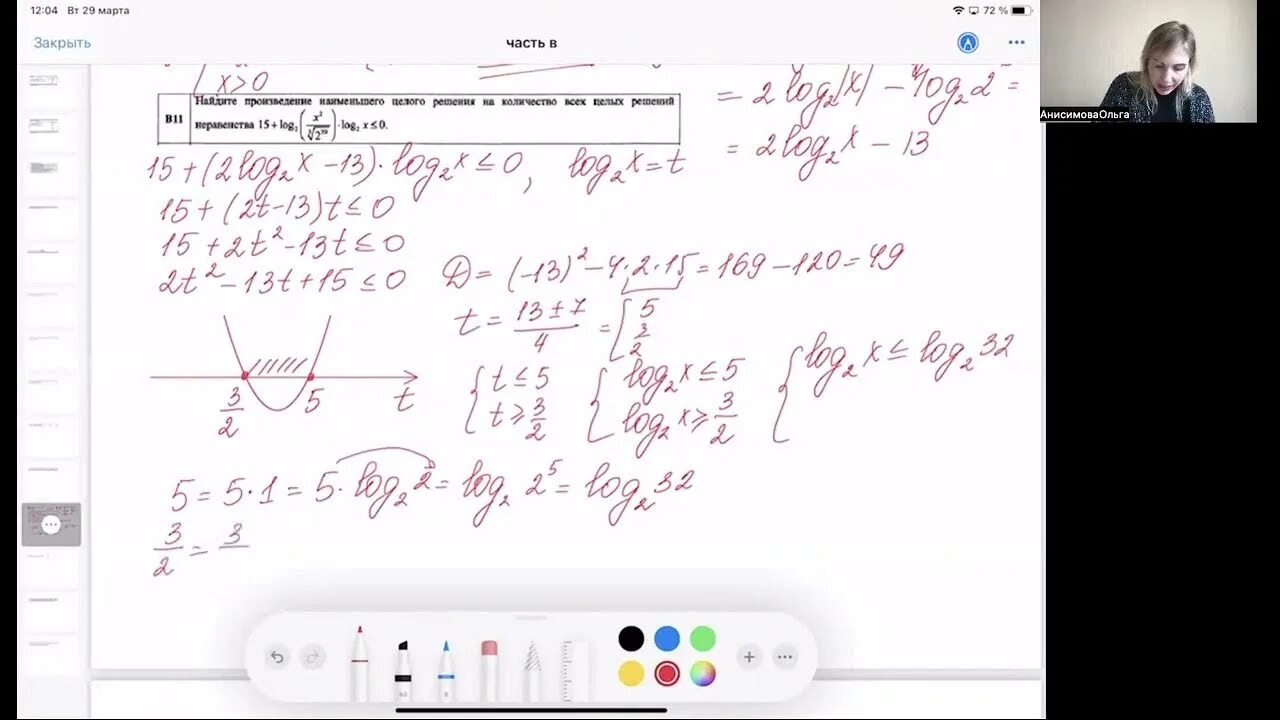 12:04 Вт 29 марта
72 %
Закрыть
часть в
x>0
= 2 log₂|x| −
B11
Найдите произведение наименьшего целого решения на количество всех целых решений
неравенства 15 + log₂ · log₂ x ≤ 0.
= 2log₂x − 13
15+(2log₂x −13)·log₂x ≤ 0, log₂x = t
15+(2t−13)t ≤ 0
15+2t²−13t ≤ 0
2t²−13t+15 ≤ 0
D = (−13)²−4·2·15 = 169−120 = 49
t = (13±7)/4 = [5 3/2
3/2 5 t
{ t ≤ 5 t ≥ 3/2
{ log₂x ≤ 5 log₂x ≥ 3/2
{ log₂x ≤ log₂32
5 = 5·1 = 5·log₂2 = log₂2⁵ = log₂32
3/2 = 3
АнисимоваОльга